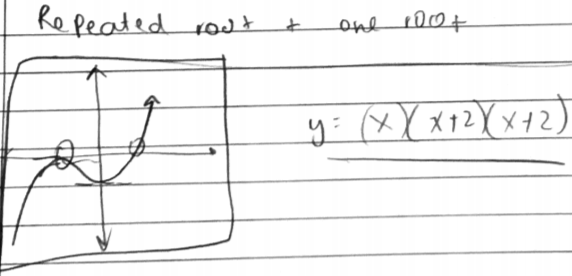 Repeated root + one root
y = (x)(x+2)(x+2)